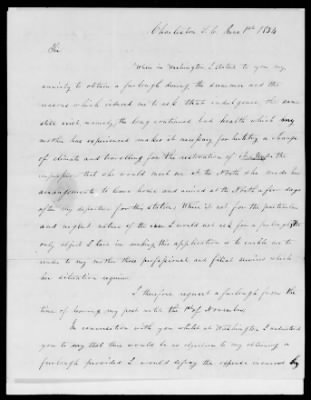 Charleston S. C. June 1st 1834
Sir
When in Washington I stated to you my
anxiety to obtain a furlough during the summer and the
reasons which induced me to ask that indulgence, the same
still exist, namely, the long continued bad health which my
mother has experienced makes it necessary for her to try a change
of climate and travelling for the restoration of the
impression that she would meet me at the North she made her
arrangements to leave home and arrived at the North a few days
after my departure for this station. Were it not for the particular
and urgent nature of the case I would not ask for a furlough, the
only object I have in making this application is to enable me to
render to my mother those professional and filial services which
her situation requires.
I therefore request a furlough from the
time of leaving my post until the 1st of November.
In conversation with you whilst at Washington I understood
you to say that there would be no objection to my obtaining a
furlough provided I would defray the expense incurred by